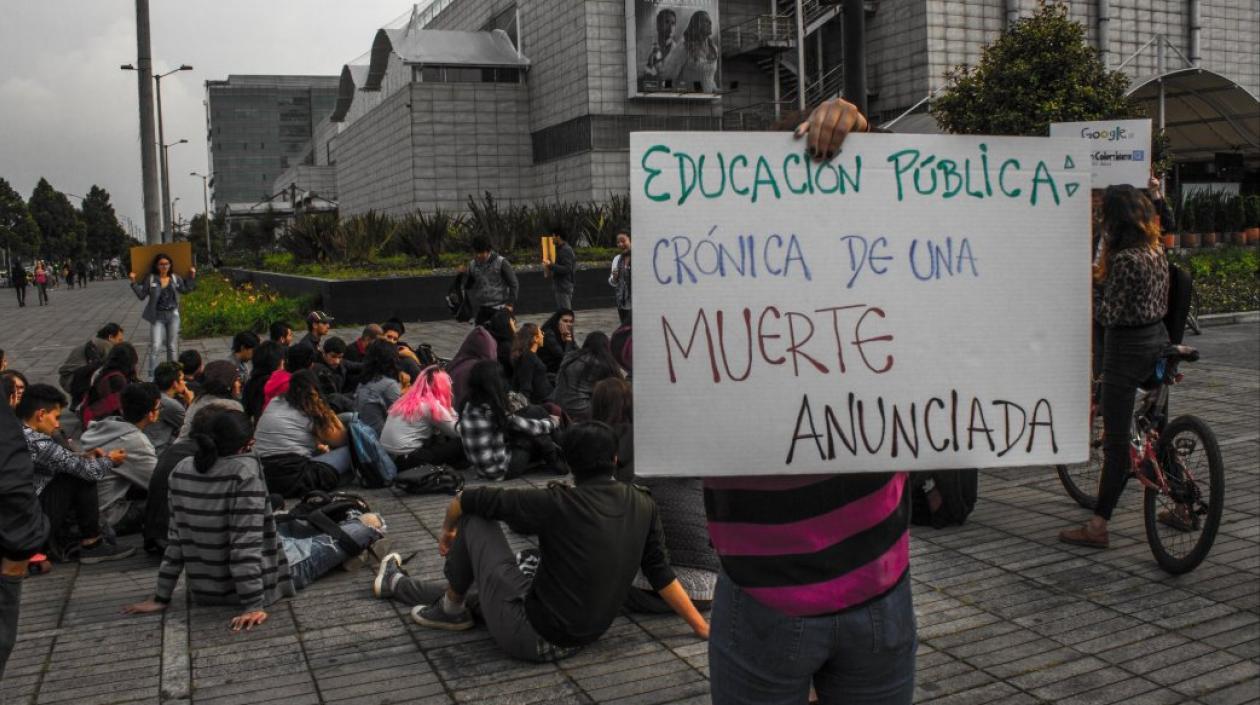 EDUCACIÓN PÚBLICA:
CRÓNICA DE UNA
MUERTE
ANUNCIADA
Google
Colombiana